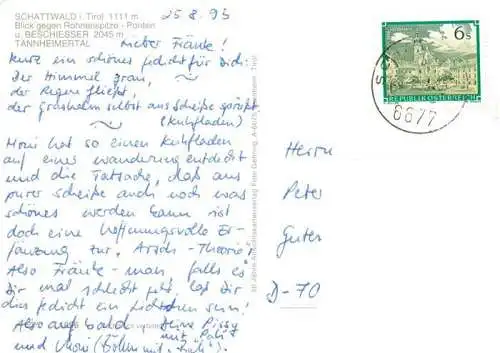 SCHATTWALD i. Tirol 1111 m
Blick gegen Rohnenspitze - Ponten
u. BESCHIESSER 2045 m
TANNHEIMERTAL
25.8.93
Lieber Fränke!
Kurz ein schönes Gedicht für Dich:
Der Himmel grau,
der Regen fließt,
der Grashalm selbst aus Scheiße sprießt
(Kuhfladen)
Moni hat so einen Kuhfladen
auf einer Wanderung entdeckt
und die Tatsache, daß aus
purer Scheiße auch noch was
schönes werden kann ist
doch eine hoffnungsvolle Er-
gänzung zur "Arsch-Theorie"!
Also Fränke-man, falls es
Dir mal schlecht geht, laß Dir
dies Gedicht ein Lichtchen sein!
Also auf bald
Deine Pissy
mit "Pali"
und Moni (Böhm mit
6 S
REPUBLIK ÖSTERREICH
6677
Herrn
Peter
Guter
D-70